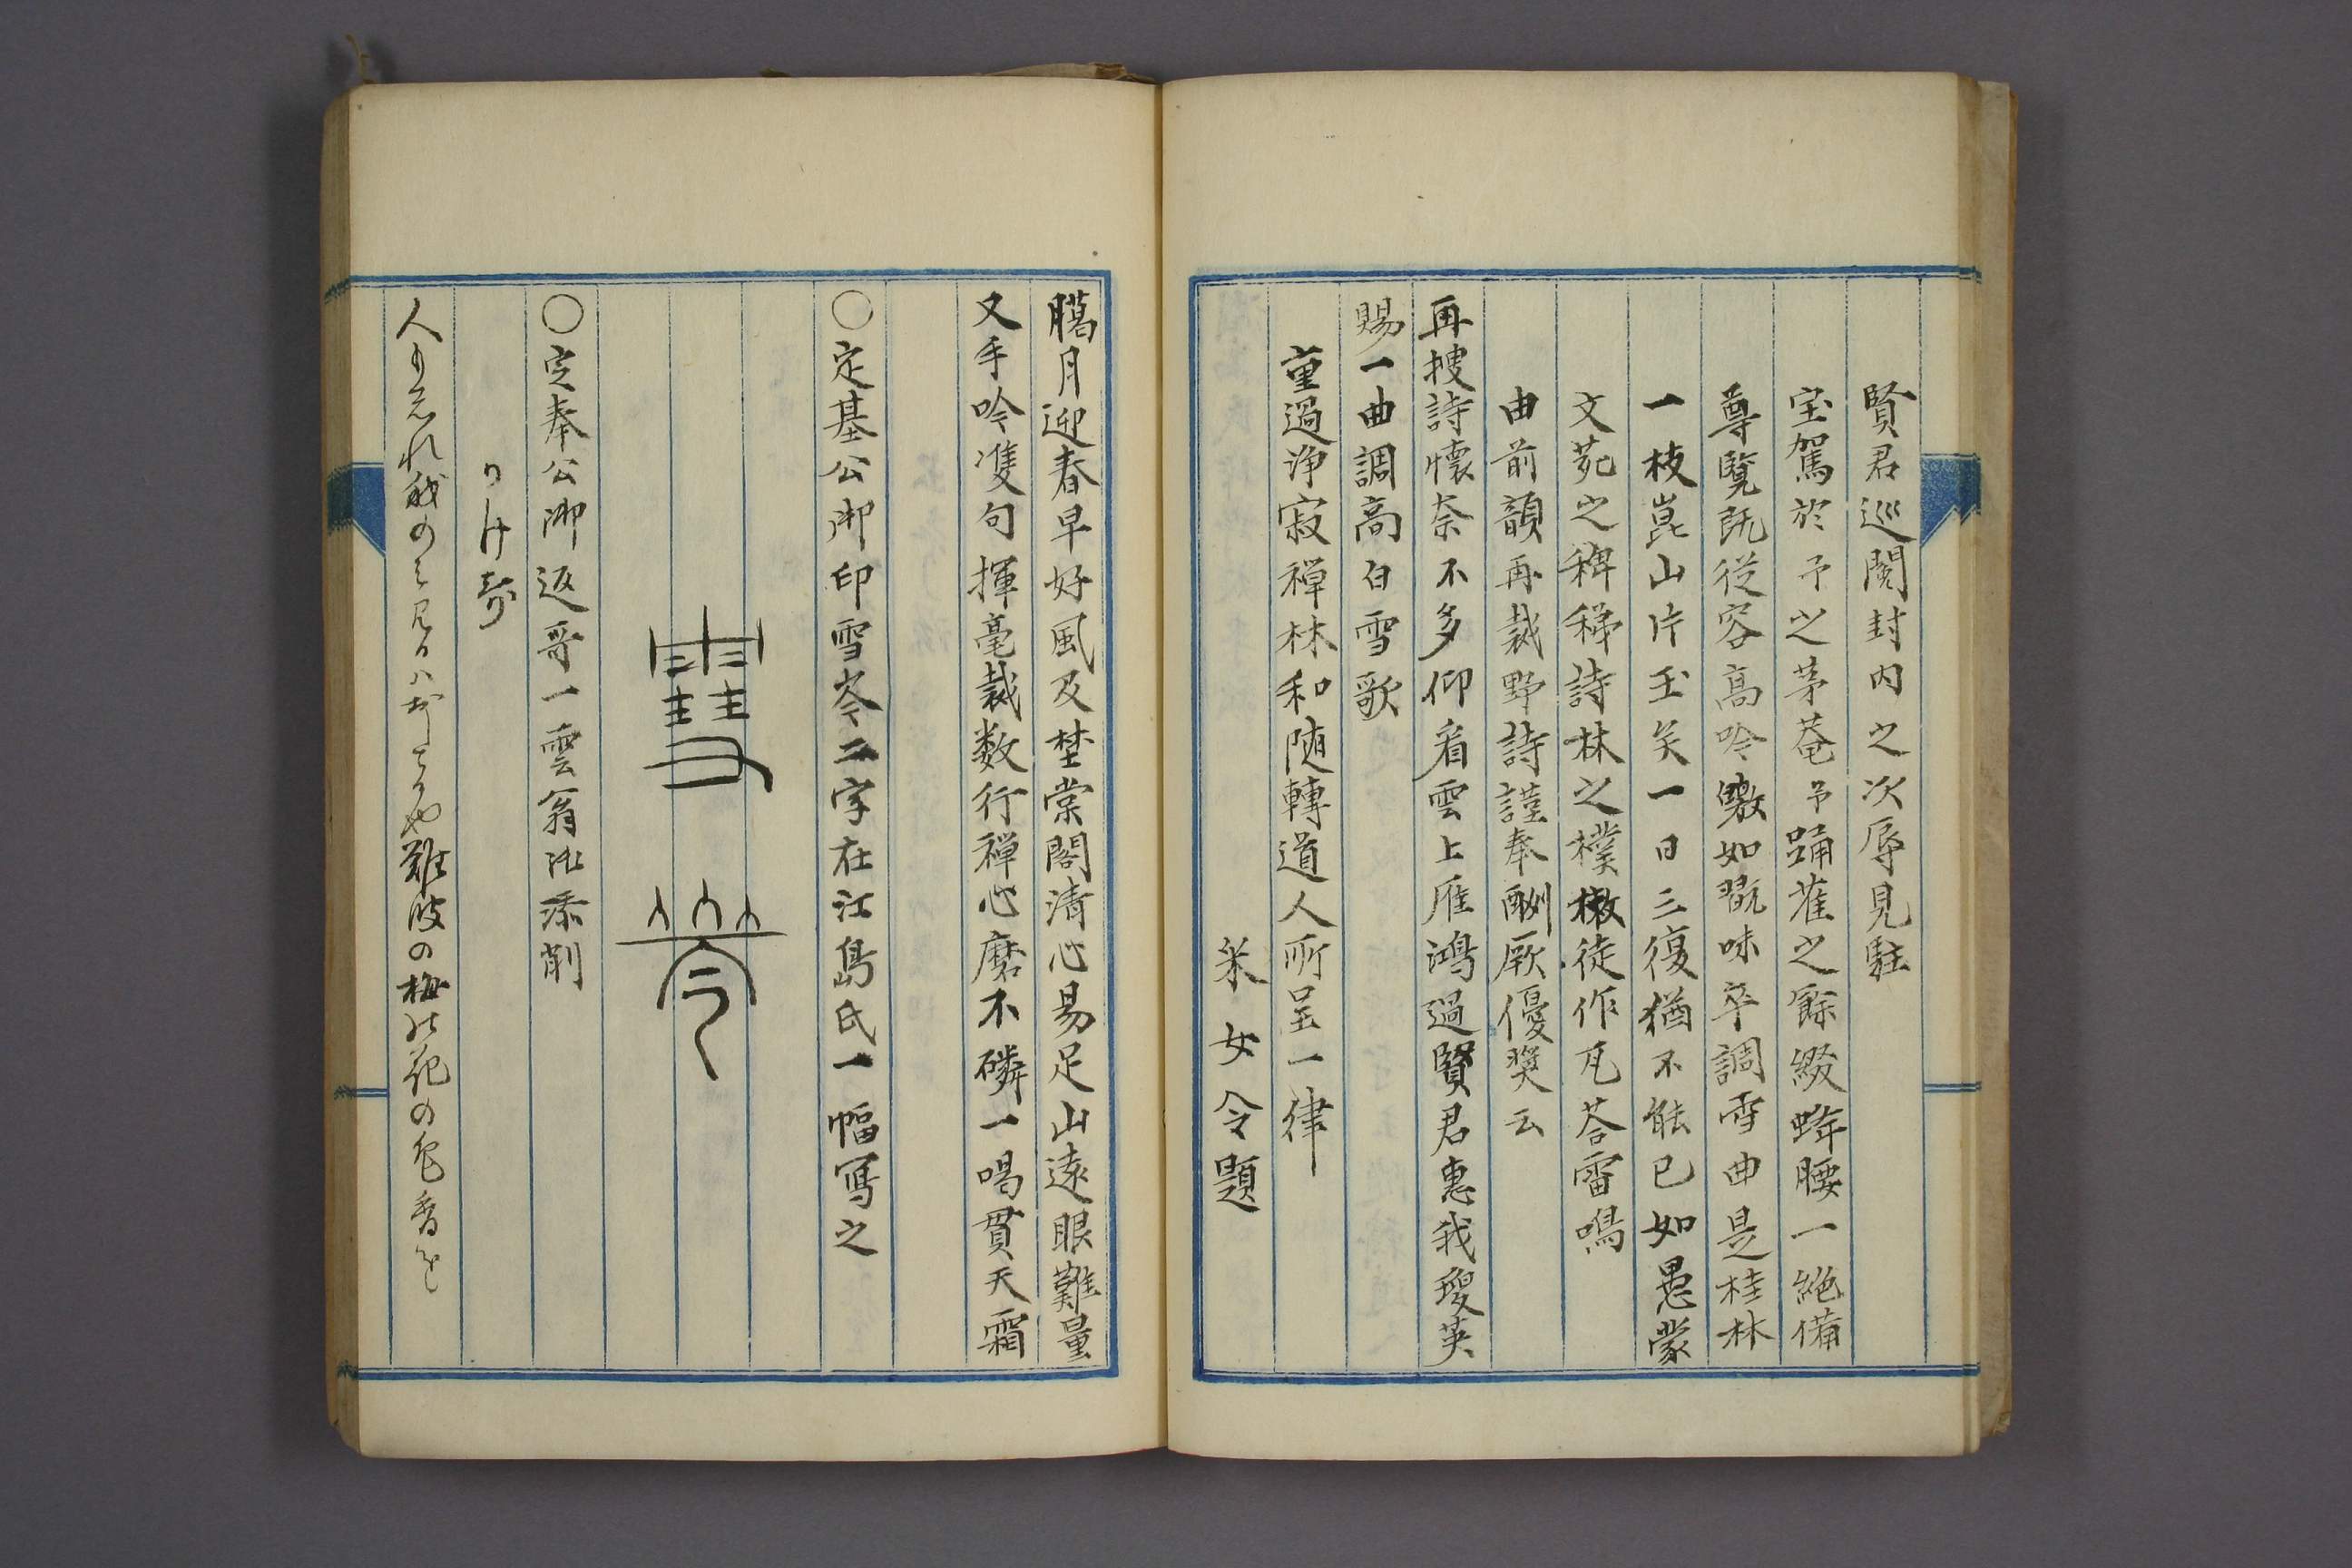 賢君巡闔封内之次辱見駐
宝駕於予之茅菴予踊萑之餘綴蜂腰一絶備
尊覧既従容高吟皦如翫味卒調雪曲是桂林
一枝崑山片玉矣一日三復猶不能已如愚蒙
文苑之稗稊詩林之樸樕徒作瓦荅雷鳴
由前韻再裁野詩謹奉酬厥優奨云
再捜詩懐奈不多仰看雲上雁鴻過賢君恵我瓊英
賜一曲調高白雪歌
重過浄寂禅林和随轉道人所呈一律
采女令題
臈月迎春早好風及埜棠閣清心易足山遠眼難量
叉手吟隻句揮毫裁数行禅心磨不磷一喝貫天霜
〇定基公御印雪岑二字在江島氏一幅写之
雪岑
〇定奉公御返哥一雲翁批添削
かけ哥
人もをれ我のミ見るハおしてるや難波の梅の花の色香を